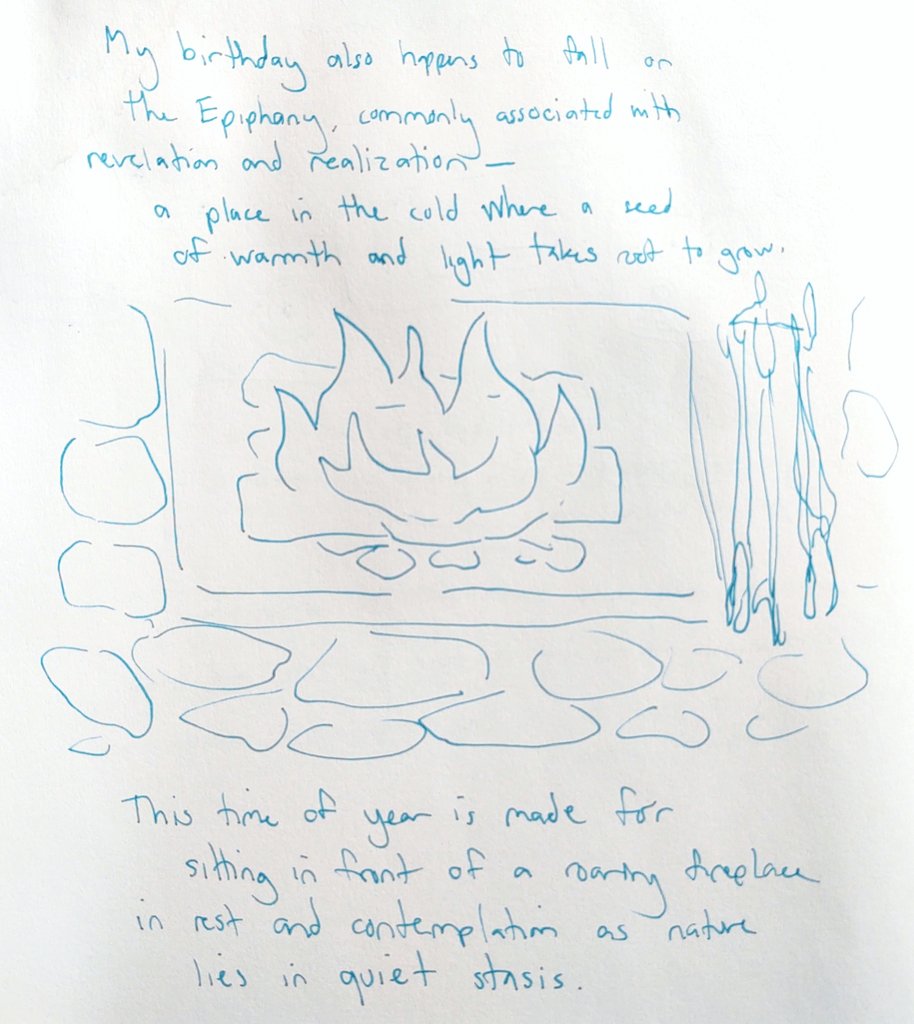 My birthday also happens to fall on
the Epiphany, commonly associated with
revelation and realization —
a place in the cold where a seed
of warmth and light takes root to grow.
This time of year is made for
sitting in front of a roaring fireplace
in rest and contemplation as nature
lies in quiet stasis.